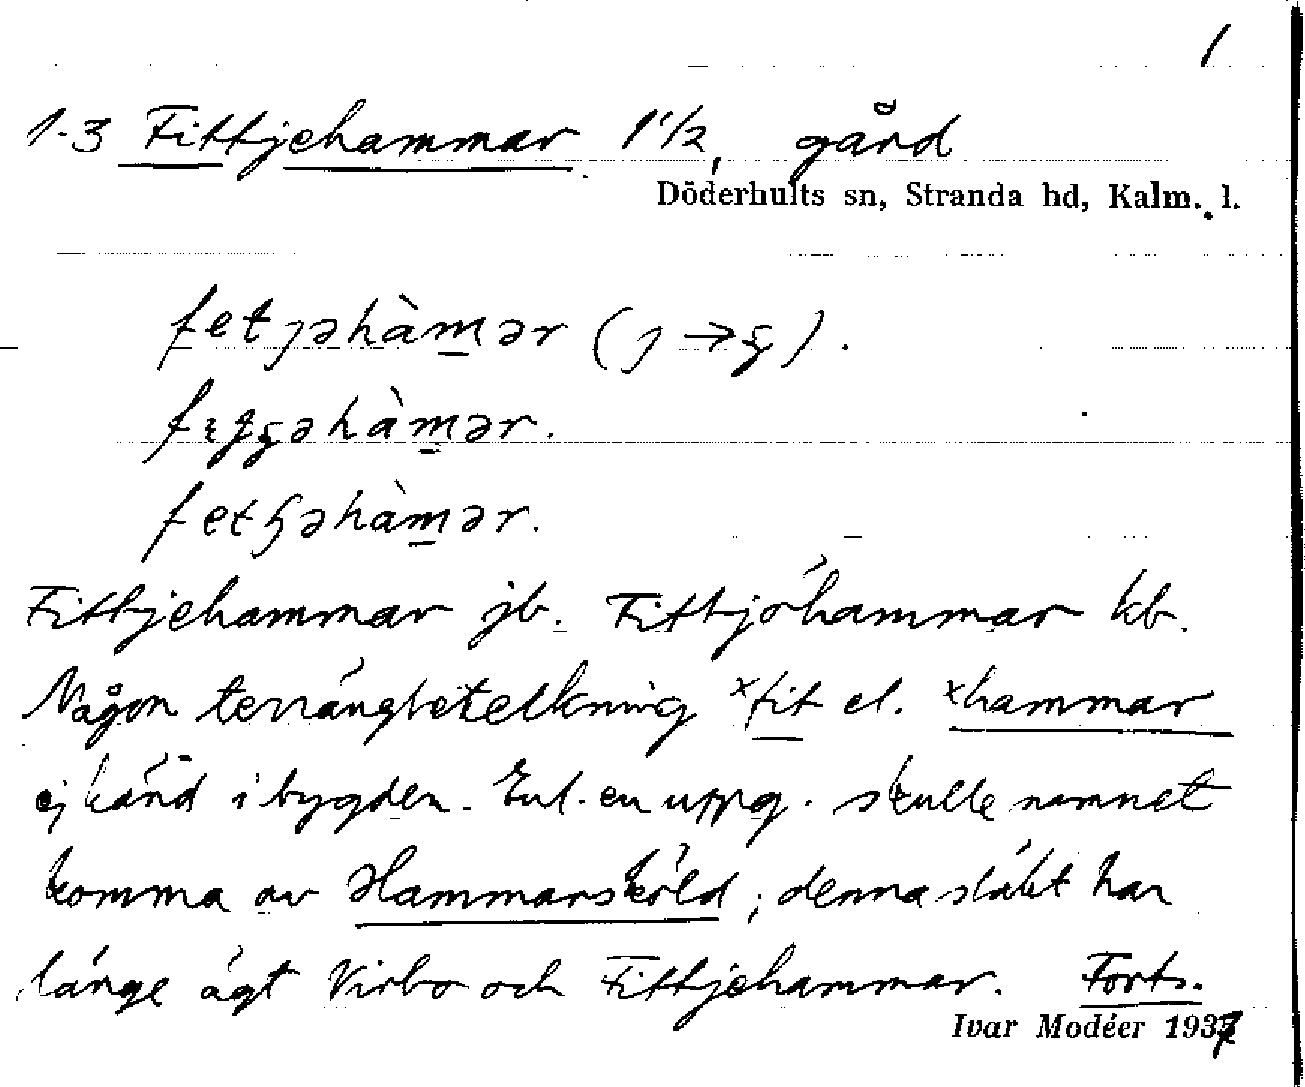 1
1-3 Fittjehammar 1 1/2, gård
Döderhults sn, Stranda hd, Kalm. l.
fetȷəhàmər (ȷ → ʒ).
fethəhàmər.
Fittjehammar jb. Fittjöhammar kb.
Någon terrängbeteckning ˣfit el. ˣhammar
ej känd i bygden. Enl. en uppg. skulle namnet
komma av Hammarsköld; denna släkt har
länge ägt Virbo och Fittjehammar. Forts.
Ivar Modéer 1937